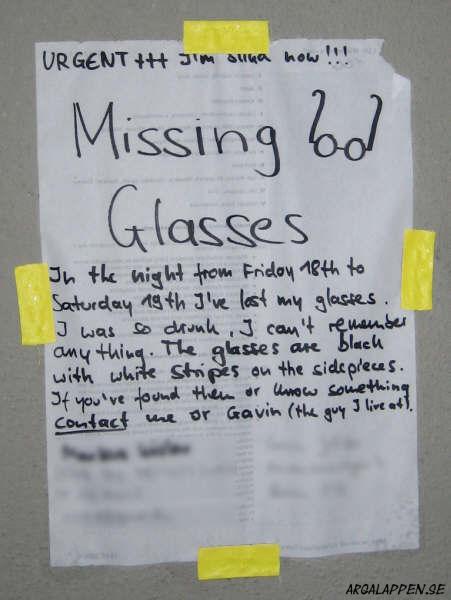 URGENT +++ I'm blind now!!!
Missing
Glasses
In the night from Friday 18th to
Saturday 19th I've lost my glasses.
I was so drunk, I can't remember
anything. The glasses are black
with white stripes on the sidepieces.
If you've found them or know something
contact me or Gavin (the guy I live at).
ARGALAPPEN.SE